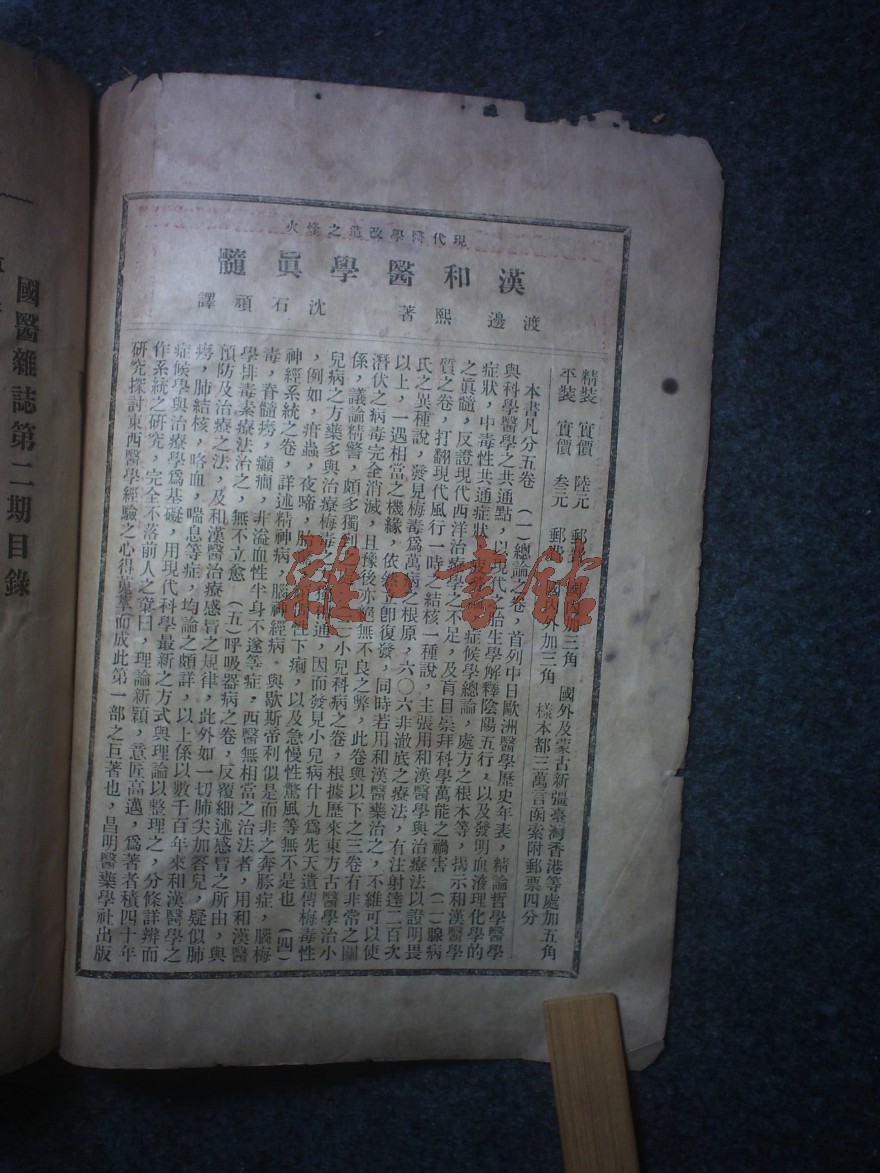 現代醫學改造之烽火
漢和醫學眞髓
渡邊熙著 沈石頑譯
精裝 實價 陸元 郵費 國內加三角 國外及蒙古新彊臺灣香港等處加五角
平裝 實價 叁元 郵費 國內外加三角 樣本都三萬言函索附郵票四分
本書凡分五卷 (一)總論之卷，首列中日歐洲醫學歷史年表，精論哲學醫學
與科學醫學之共通點，以現代之胎生學解釋陰陽五行，以及發明血液理化學的
症狀，中毒性共通症狀，症候學總論，處方之根本等，揭示和漢醫學
之眞髓，反證現代西洋治療學之不足，及盲目崇拜科學萬能之禍害 (二)腺病
質之卷，打翻現代風行一時之結核一種說，主張用和漢醫學與治療法以證明畏
氏之異種說，發見梅毒爲萬病之根原，六〇六非澈底之療法，有注射達二百次
以上，一遇相當之機緣，依然立卽復發，同時若用和漢醫藥治之，不維可以使
潛伏之病毒完全消滅，且豫後亦絕無不良之弊，此卷與以下之三卷有非常之關
係，議論精警，頗多獨到 小兒科病之卷，根據歷來東方古醫學治小
兒病之方藥多與治療梅毒之 相通，因而發見小兒病什九爲先天遺傳梅毒性
，例如，疳蟲，夜啼，胎 性下痢，以及急慢性驚風等無不是也 (四)
神經系統之卷，詳述精神病，腦神經病。與歇斯帝利似是而非之奔豚症，腦梅
毒，脊髓癆，癲癇，非溢血性半身不遂等症，西醫無相當之治法者，用和漢醫
學排毒素療法治之，無不立愈 (五)呼吸器病之卷，反覆細述感冒之所由，與
預防及治療之法，及和漢醫治療感冒之規律，此外如一切肺尖加答兒，疑似肺
癆，肺結核，咯血，喘息等症，均論之頗詳，以上係以數千百年來和漢醫學之
症候學與治療學爲基礎，用現代科學最新之方式與理論以整理之，分條詳辨而
作系統之研究，完全不落前人之窠臼，理論新穎，意匠高邁，爲著者積四十年
研究探討東西醫學經驗之心得薈萃而成此第一部之巨著也，昌明醫藥學社出版
國醫雜誌第二期目錄
雜·書館